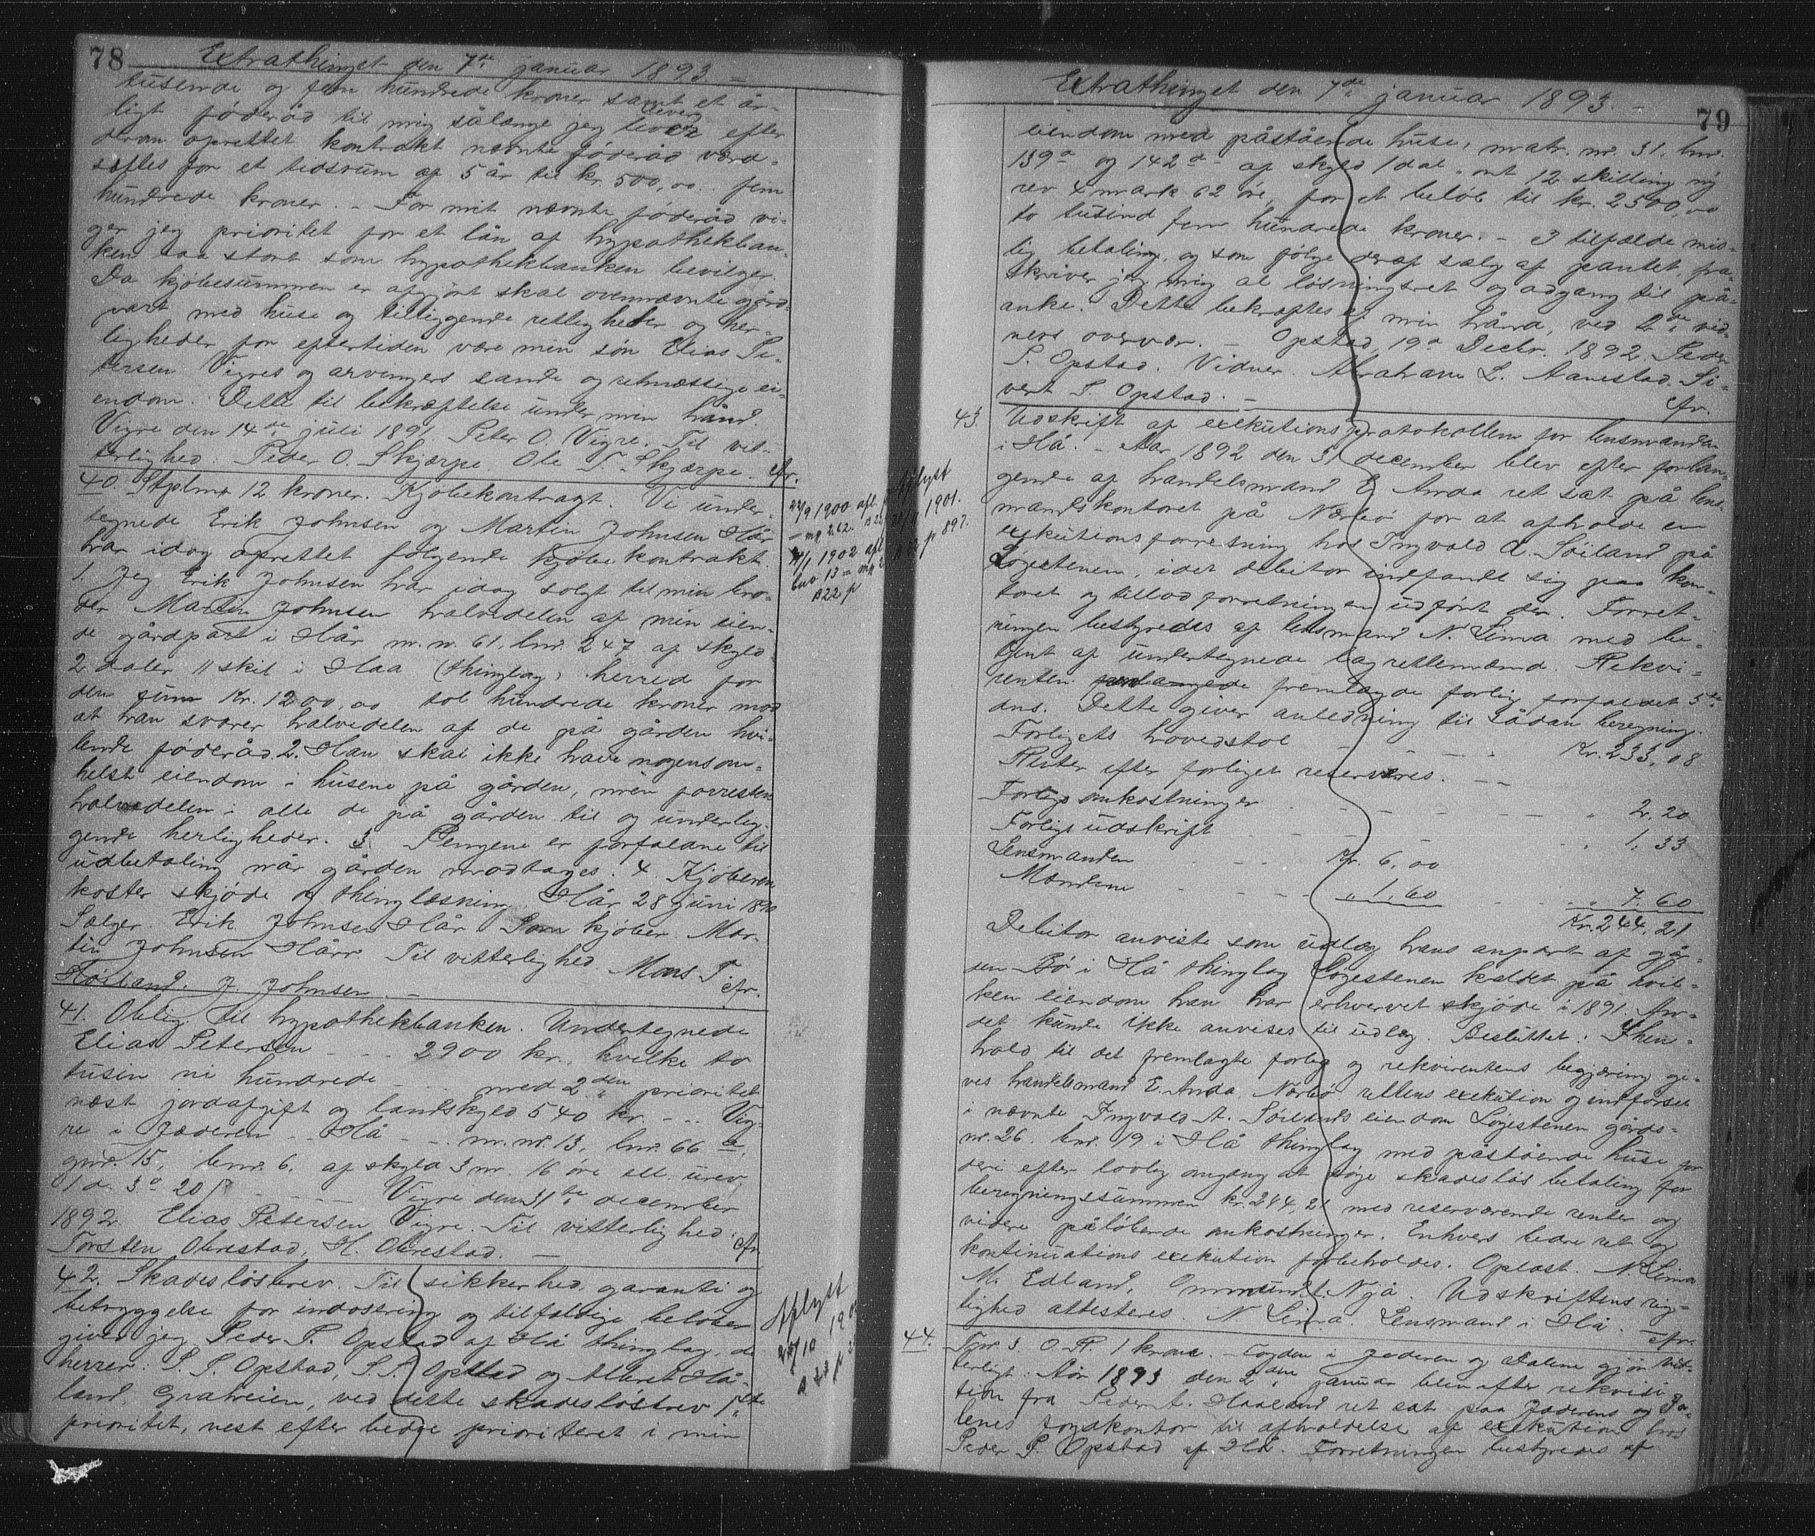 78 Extrathinget den 7de januar 1893. —
tusende og fem hundrede kroner samt et år-
ligt føderåd til mig sålænge jeg lever efter
derom oprettet kontrakt nævnte føderåd værd-
sættes for et tidsrum af 5 år til kr. 500,00. fem
hundrede kroner. – For mit nævnte føderåd vi-
ger jeg prioritet for et lån af hypothekban-
ken saa stort som hypothekbanken bevilger.
Da kjøbesummen er afgjort skal ovennævnte gård-
part med huse og tilliggende retligheder og her-
ligheder for eftertiden være min søn Elias Pe-
tersen Vigres og arvingers sande og retmæssige ei-
endom. Dette til bekræftelse under min hånd.
Vigre den 14de juli 1891. Peter O. Vigre. Til vit-
terlighed: Peder O. Skjærpe. Ole T. Skjærpe. cfr.
40. Stplm 12 kroner. Kjøbekontragt. Vi under-
tegnede Erik Johnsen og Martin Johnsen Hår
har idag oprettet følgende kjøbekontrakt.
1. Jeg Erik Johnsen har idag solgt til min bro-
der Martin Johnsen halvedelen af min eien-
de gårdpart i Hår m. nr. 61. lnr. 247 af skyld
2 daler 11 skil i Haa (thinglag) herred for
den sum Kr. 1200,00 tol hundrede kroner mod
at han svarer halvedelen af de på gården hvi-
lende føderåd. 2. Han skal ikke have nogensom-
helst eiendom i husene på gården, men forresten
halvedelen i alle de på gården til og underlig-
gende herligheder. 3. Pengene er forfaldne til
udbetaling når gården modtages. 4 Kjøberen
koster skjøde og thinglæsning. Hår 28 juni 1890
Sælger Erik Johnsen Hår Som kjøber Mar-
tin Johnsen Hårr. Til vitterlighed Mons T.
Høiland. J Johnsen. — cfr.
22/9 1900 afl.
mg 262. B 22
4/1 1902 afl
bnr 13 = mg
B22 p
Aflyst
1901.
p 897.
41. Oblig. til hypothekbanken. Undertegnede
Elias Petersen - - - 2900 kr. hvilke to
tusin ni hundrede - - - med 2den prioritet
næst jordafgift og landskyld 540 kr. - - . Vig-
re i Jæderen - - Hå - - m. nr. 13, lnr. 66 a,
gnr. 15, bnr. 6, af skyld 3 mr. 16 øre ell. urev
1 d. 3 o 20 s - - - - Vigre den 31te december
1892. Elias Petersen Vigre. Til vitterlighed:
Torsten Obrestad, H. Obrestad. — cfr.
42. Skadesløsbrev. Til sikkerhed, garanti og
betryggelse for indostring og tilfældige beløber
giver jeg Peder P. Opstad af Hå thinglag, de
herrer: S. S. Opstad, S. S. Opstad og Albret Hå-
land, Graveien, ved dette skadesløsbrev 1ste
prioritet, nest efter bedre prioriteret i min
Aflyst
23/10 19
B 23 p
Extrathinget den 7de januar 1893. — 79
eiendom med påstående huse, matr. nr. 31. lnr.
139a og 142a af skyld 1 dal. ort 12 skilling ny
rev 4 mark 62 øre, for et beløb til kr. 2500,00
to tusind fem hundrede kroner. – I tilfælde mis-
lig betaling, og som følge deraf salg af pantet, fra-
skriver jeg mig al løsningsret og adgang til på-
anke. Dette bekræftes af min hånd, ved 2de vid-
ners overvær. – Opstad, 19de Decbr. 1892. Peder
P. Opstad. Vidner. Abraham L. Aanestad. Si-
vert S. Opstad. — cfr.
43. Udskrift af exekutionsprotokollen for lensmanden
i Hå. – Aar 1892 den 31 december blev efter forlan-
gende af handelsmand E. Anda ret sat på lens-
mandskontoret på Nærbø for at afholde en
exekutionsforretning hos Ingvald A. Søiland på
Løgestenen, idet debitor indfandt sig paa kon-
toret og tillod forretningen udført der. Forret-
ningen bestyredes af lensmand N. Lima med be-
tjent af undertegnede lagrettemænd. Rekvi-
renten fremlagde forlig forfaldet 5te
dns. Dette giver anledning til sådan beregning.
Forligets hovedstol - - - - Kr. 233,08
Renter efter forliget reserveres. - -
Forligsomkostninger - - - - - " 2,20
Forligsudskrift - - - - - " 1,33
Lensmanden - - Kr. 6,00
Mændene - - - " 1,60 - - " 7,60
Kr. 244,21
Debitor anviste som udlæg hans anpart af går-
den Bø i Hå thinglag Løgestenen kaldet på hvil-
ken eiendom han har erhvervet skjøde i 1891. An-
det kunde ikke anvises til udlæg. Besluttet: I hen-
hold til det fremlagte forlig og rekvirentens begjæring gi-
ves handelsmand E. Anda, Nærbø rettens exekution og indførsel
i nævnte Ingvald A. Søilands eiendom Løgestenen gårds-
nr. 26. bnr. 19 i Hå thinglag med påstående huse for
deri efter lovlig omgang at søge skadesløs betaling for
beregningssummen kr. 244,21 med reserverende renter og
videre påløbende omkostninger. Enhvers bedre ret og
kontinuations exekution forbeholdes. Oplæst. N. Lima
M. Edland, Ommund L. Njå. Udskriftens rig-
tighed attesteres. N Lima. Lensmand i Hå. cfr.
44. For 3. O. R. 1 krone. – Fogden i Jæderen og Dalene gjør vit-
terligt: Aar 1893 den 2den januar blev efter rekvisi-
tion fra Peder A. Haaland ret sat paa Jæderens og Da-
lenes fogdkontor til afholdelse af exekution hos
Peder P. Opstad af Hå. Forretningen bestyredes af